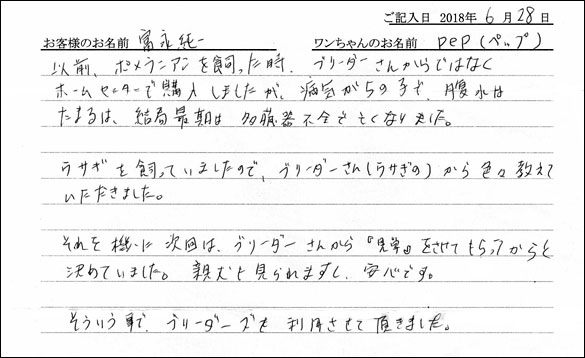 ご記入日 2018年 6月 28日
お客様のお名前 富永純一 ワンちゃんのお名前 pep(ペップ)
以前、ポメラニアンを飼った時、ブリーダーさんからではなく
ホームセンターで購入しましたが、病気がちの子で、腹水は
たまるは、結局最期は多臓器不全で亡くなりました。
ウサギを飼っていましたので、ブリーダーさん(うさぎの)から色々教えて
いただきました。
それを機に次回は、ブリーダーさんから『見学』をさせてもらってからと
決めていました。親犬も見られますし、安心です。
そういう事で、ブリーダーズを利用させて頂きました。